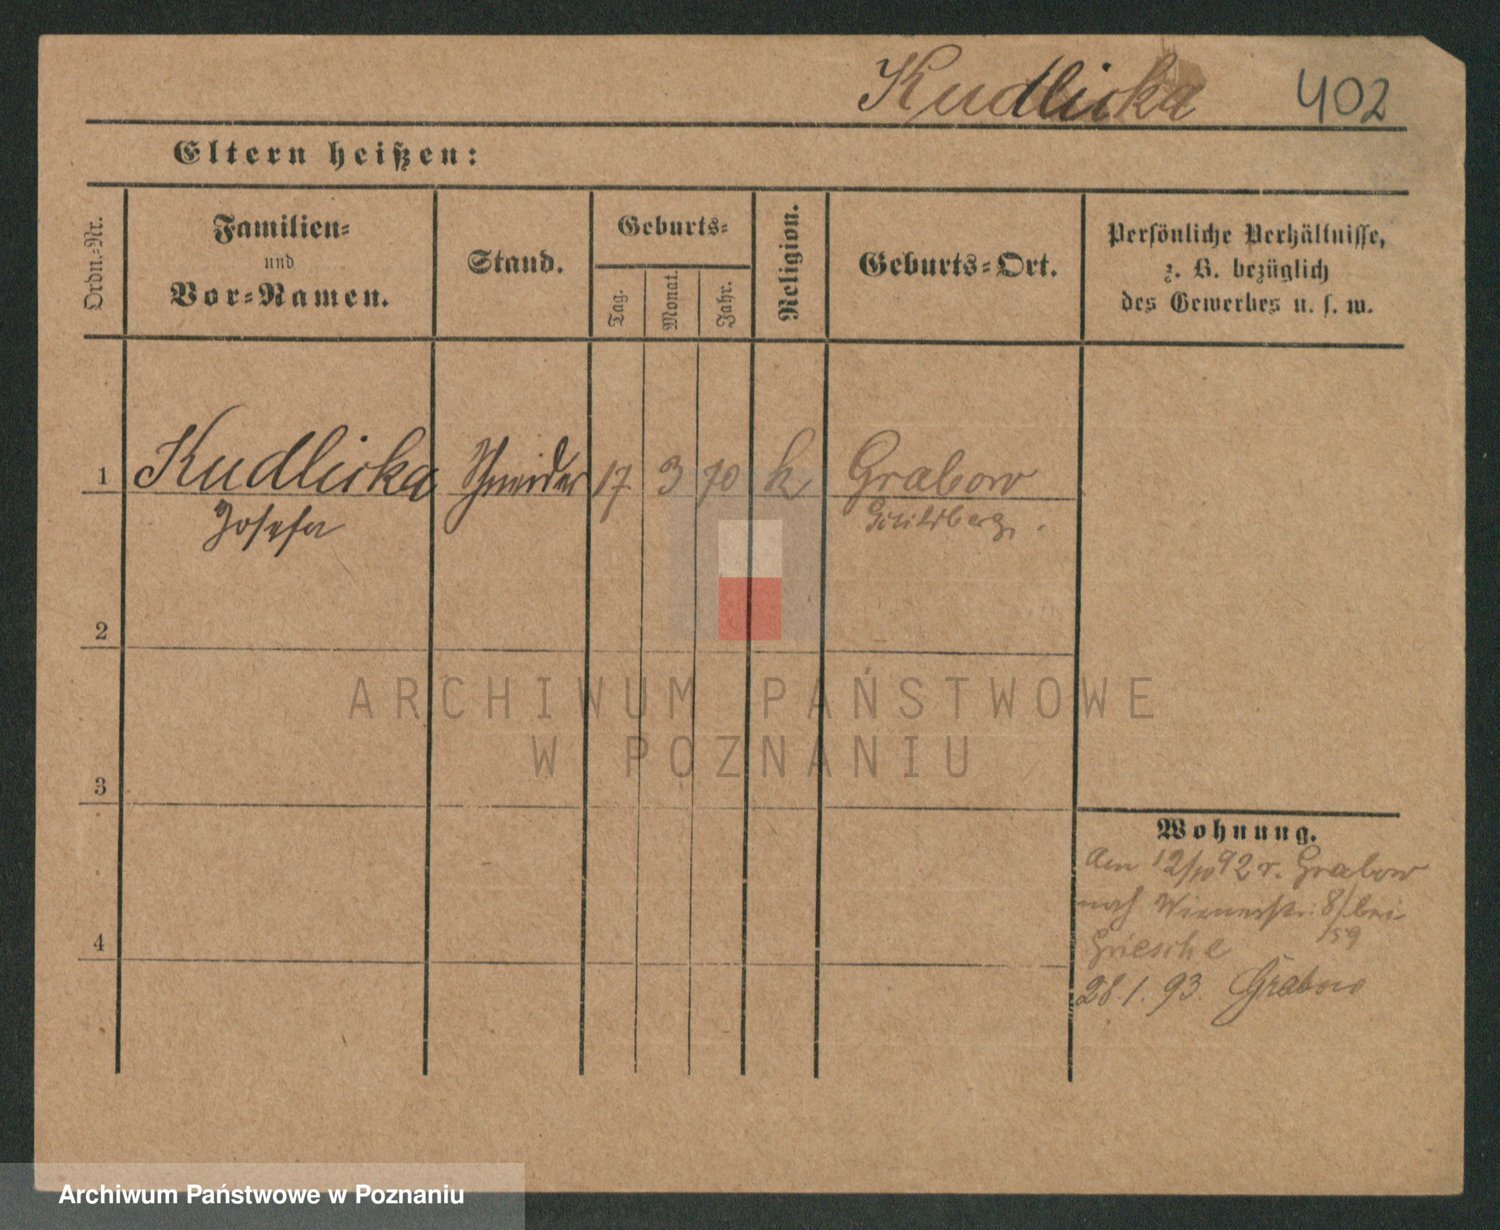 Kudlicka 402
Eltern heißen:
Ordn.-Nr.
Familien-
und
Vor-Namen.
Stand.
Geburts-
Tag.
Monat.
Jahr.
Religion.
Geburts-Ort.
Persönliche Verhältnisse,
z. B. bezüglich
des Gewerbes u. s. w.
1 Kudlicka Schneider 17 3 70 k Grabow
Josefa Schildberg.
2
ARCHIWUM PAŃSTWOWE
W POZNANIU
3
Wohnung.
Am 12/10 92 v. Grabow
nach Wienerstr. 8/ bei
59
4 Griesche
28.1.93. Grabow
Archiwum Państwowe w Poznaniu